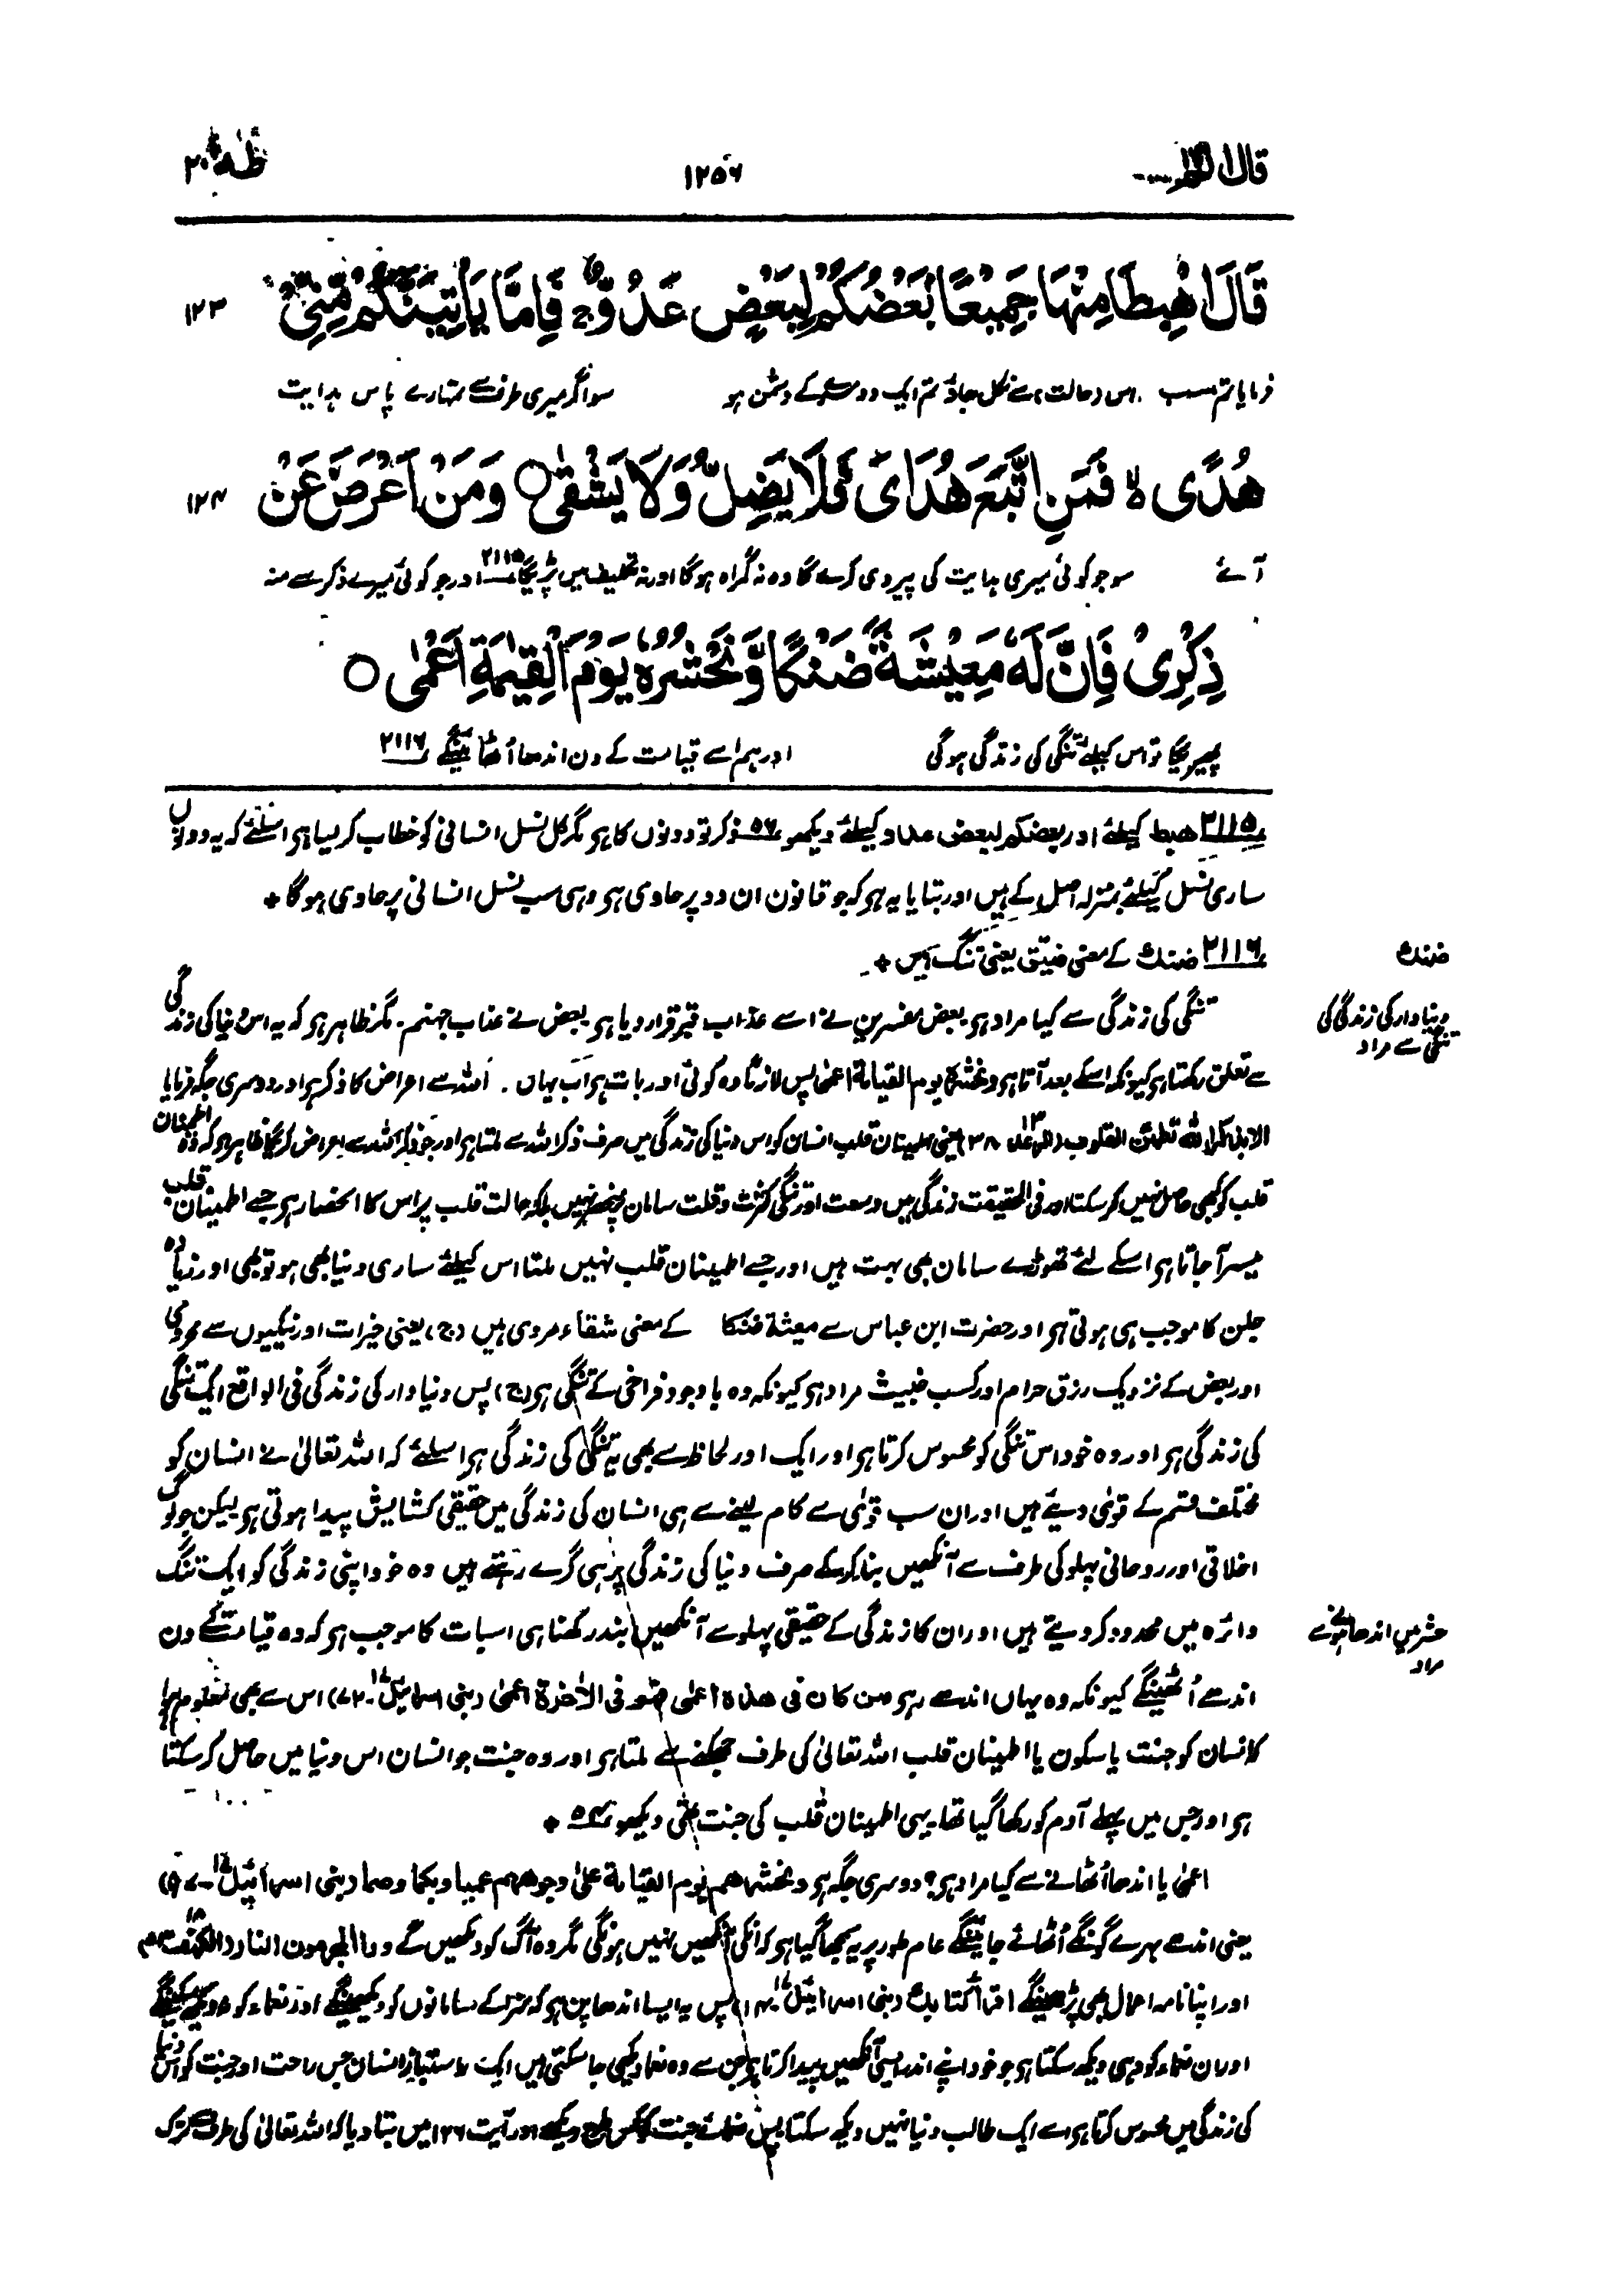 قال الم
١٢٥٦
طٰهٰ ٢٠
قَالَ اهْبِطَا مِنْهَا جَمِيْعًا بَعْضُكُمْ لِبَعْضٍ عَدُوٌّ ج فَاِمَّا يَاْتِيَنَّكُمْ مِّنِّيْ
١٢٣
فرمایا تم سب (اس حالت) سے نکل جاؤ تم ایک دوسرے کے دشمن ہو سو اگر میری طرف سے تمہارے پاس ہدایت
هُدًى ۵ لا فَمَنِ اتَّبَعَ هُدَايَ فَلَا يَضِلُّ وَلَا يَشْقٰى ○ وَمَنْ اَعْرَضَ عَنْ
١٢٤
آئے سو جو کوئی میری ہدایت کی پیروی کرے گا وہ نہ گمراہ ہوگا اور نہ تکلیف میں پڑیگا ٢١١٥ اور جو کوئی میرے ذکر سے منہ
ذِكْرِيْ فَاِنَّ لَهٗ مَعِيْشَةً ضَنْكًا وَّنَحْشُرُهٗ يَوْمَ الْقِيٰمَةِ اَعْمٰى ○
پھیریگا تو اس کیلئے تنگی کی زندگی ہوگی اور ہم اسے قیامت کے دن اندھا اُٹھائینگے ٢١١٦
٢١١٥ ھبط کیلئے اور بعضکم لبعض عدو کیلئے دیکھو ٥٦ ذکر تو دونوں کا ہو مگر کل نسل انسانی کو خطاب کر لیا ہو اسلئے کہ یہ دونوں
ساری نسل کیلئے بمنزلہ اصل کے ہیں اور بتایا یہ ہو کہ جو قانون ان دو پر حاوی ہو وہی سب نسل انسانی پر حاوی ہوگا +
٢١١٦ ضنك کے معنی ضیّق یعنی تنگ ہیں +
ضنك
تنگی کی زندگی سے کیا مراد ہو بعض مفسرین نے اسے عذاب قبر قرار دیا ہو بعض نے عذاب جہنم۔ مگر ظاہر ہو کہ یہ اس دنیا کی زندگی
دنیادار کی زندگی کی
تنگی سے مراد
سے تعلق رکھتا ہو کیونکہ اسکے بعد آتا ہو ونحشرہ یوم القیامة اعمیٰ پس لازماً وہ کوئی اور بات ہو اب یہاں . اللہ سے اعراض کا ذکر ہو اور دوسری جگہ فرمایا
الا بذکر اللہ تطمئن القلوب (الرعد ١٣۔٢٨) یعنی اطمینان قلب انسان کو اس دنیا کی زندگی میں صرف ذکر اللہ سے ملتا ہو اور جو ذکر اللہ سے اعراض کریگا ظاہر ہو کہ وہ اطمینان
قلب کو کبھی حاصل نہیں کر سکتا اور فی الحقیقت زندگی میں وسعت اور تنگی کثرت و قلت سامان پر منحصر نہیں بلکہ حالت قلب پر اس کا انحصار ہو جسے اطمینان قلب
میسر آ جاتا ہو اسکے لئے تھوڑے سامان بھی بہت ہیں اور جسے اطمینان قلب نہیں ملتا اس کیلئے ساری دنیا بھی ہو تو بھی اور زیادہ
جلن کا موجب ہی ہوتی ہو اور حضرت ابن عباس سے معیشة ضنکا کے معنی شقاء مروی ہیں (ج) یعنی خیرات اور نیکیوں سے محرومی
اور بعض کے نزدیک رزق حرام اور کسب خبیث مراد ہو کیونکہ وہ باوجود فراخی کے تنگی ہو (ج) پس دنیا دار کی زندگی فی الواقع ایک تنگی
کی زندگی ہو اور وہ خود اس تنگی کو محسوس کرتا ہو اور ایک اور لحاظ سے بھی یہ تنگی کی زندگی ہو اسلئے کہ اللہ تعالیٰ نے انسان کو
مختلف قسم کے قویٰ دیئے ہیں اور ان سب قویٰ سے کام لینے سے ہی انسان کی زندگی میں حقیقی کشایش پیدا ہوتی ہو لیکن جو لوگ
اخلاقی اور روحانی پہلو کی طرف سے آنکھیں بند کرکے صرف دنیا کی زندگی پر ہی گرے رہتے ہیں وہ خود اپنی زندگی کو ایک تنگ
دائرہ میں محدود کر دیتے ہیں اور ان کا زندگی کے حقیقی پہلو سے آنکھیں بند رکھنا ہی اسبات کا موجب ہو کہ وہ قیامت کے دن
حشر میں اندھا ہونے سے
مراد
اندھے اُٹھینگے کیونکہ وہ یہاں اندھے رہو من کان فی ھذہ اعمی فھو فی الاٰخرة اعمیٰ (بنی اسرائیل ١٧۔٧٢) اس سے بھی معلوم ہوا
کہ انسان کو جنت یا سکون یا اطمینان قلب اللہ تعالیٰ کی طرف جھکنے سے ملتا ہو اور وہ جنت جو انسان اس دنیا میں حاصل کر سکتا
ہو اور جس میں پہلے آدم کو رکھا گیا تھا۔ یہی اطمینان قلب کی جنت تھی دیکھو ٥٤ +
اعمیٰ یا اندھا اُٹھانے سے کیا مراد ہو؟ دوسری جگہ ہو ونحشرھم یوم القیامة علیٰ وجوھھم عمیا وبکما وصما (بنی اسرائیل ١٧۔٩٧)
یعنی اندھے بہرے گونگے اُٹھائے جائینگے عام طور پر یہ سمجھا گیا ہو کہ انکی آنکھیں نہیں ہونگی مگر وہ آگ کو دیکھیں گے ورا المجرمون النار (الکہف ١٨۔
اور اپنا نامہ اعمال بھی پڑھینگے اقرأ کتابك (بنی اسرائیل ١٧۔١٤) پس یہ ایسا اندھا پن ہو کہ سزا کے سامانوں کو دیکھینگے اور نعماء کو نہ دیکھ سکینگے
اور ان نعماء کو وہی دیکھ سکتا ہو جو خود اپنے اندر ایسی آنکھیں پیدا کرتا ہو جن سے وہ نعماء دیکھی جا سکتی ہیں ایک راستباز انسان جس راحت اور جنت کو اس دنیا
کی زندگی میں محسوس کرتا ہو اسے ایک طالب دنیا نہیں دیکھ سکتا پس نعمائے جنت کو کس طرح دیکھے اور آیت ١٢٦ میں بتا دیا کہ اللہ تعالیٰ کی طرف